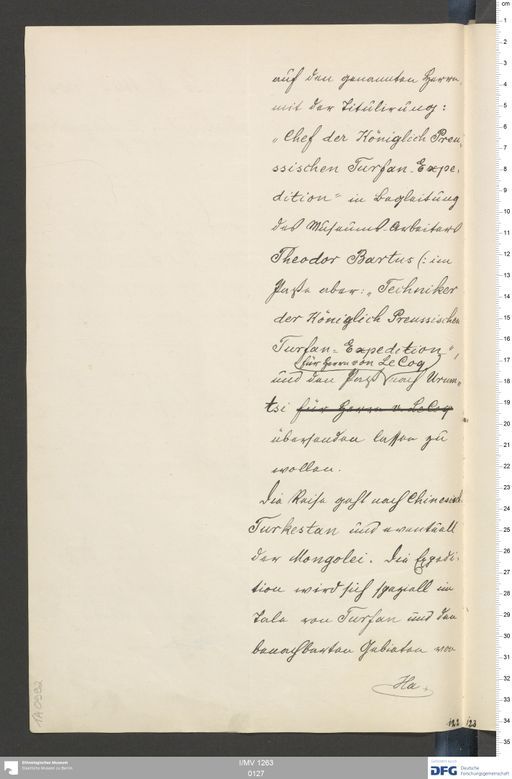 auf den genannten Herrn
mit der Titulirung:
„Chef der Königlich Preu-
ssischen Turfan-Expe-
dition“ in Begleitung
des Museums-Arbeiters
Theodor Bartus (: im
Passe aber: „Techniker
der Königlich Preussischen
Turfan-Expedition“,
für Herrn von LeCoq
und den Pass nach Urum-
tsi für Herrn v. LeCoq
übersenden lassen zu
wollen.
Die Reise geht nach Chinesisch
Turkestan und eventuell
der Mongolei. Die Expedi-
tion wird sich speziell im
Tale von Turfan und den
benachbarten Gebieten von
Ha-
122 123
1A 0992
Ethnologisches Museum
Staatliche Museen zu Berlin
I/MV 1263
0127
Gefördert durch
DFG Deutsche
Forschungsgemeinschaft
cm
1
2
3
4
5
6
7
8
9
10
11
12
13
14
15
16
17
18
19
20
21
22
23
24
25
26
27
28
29
30
31
32
33
34
35